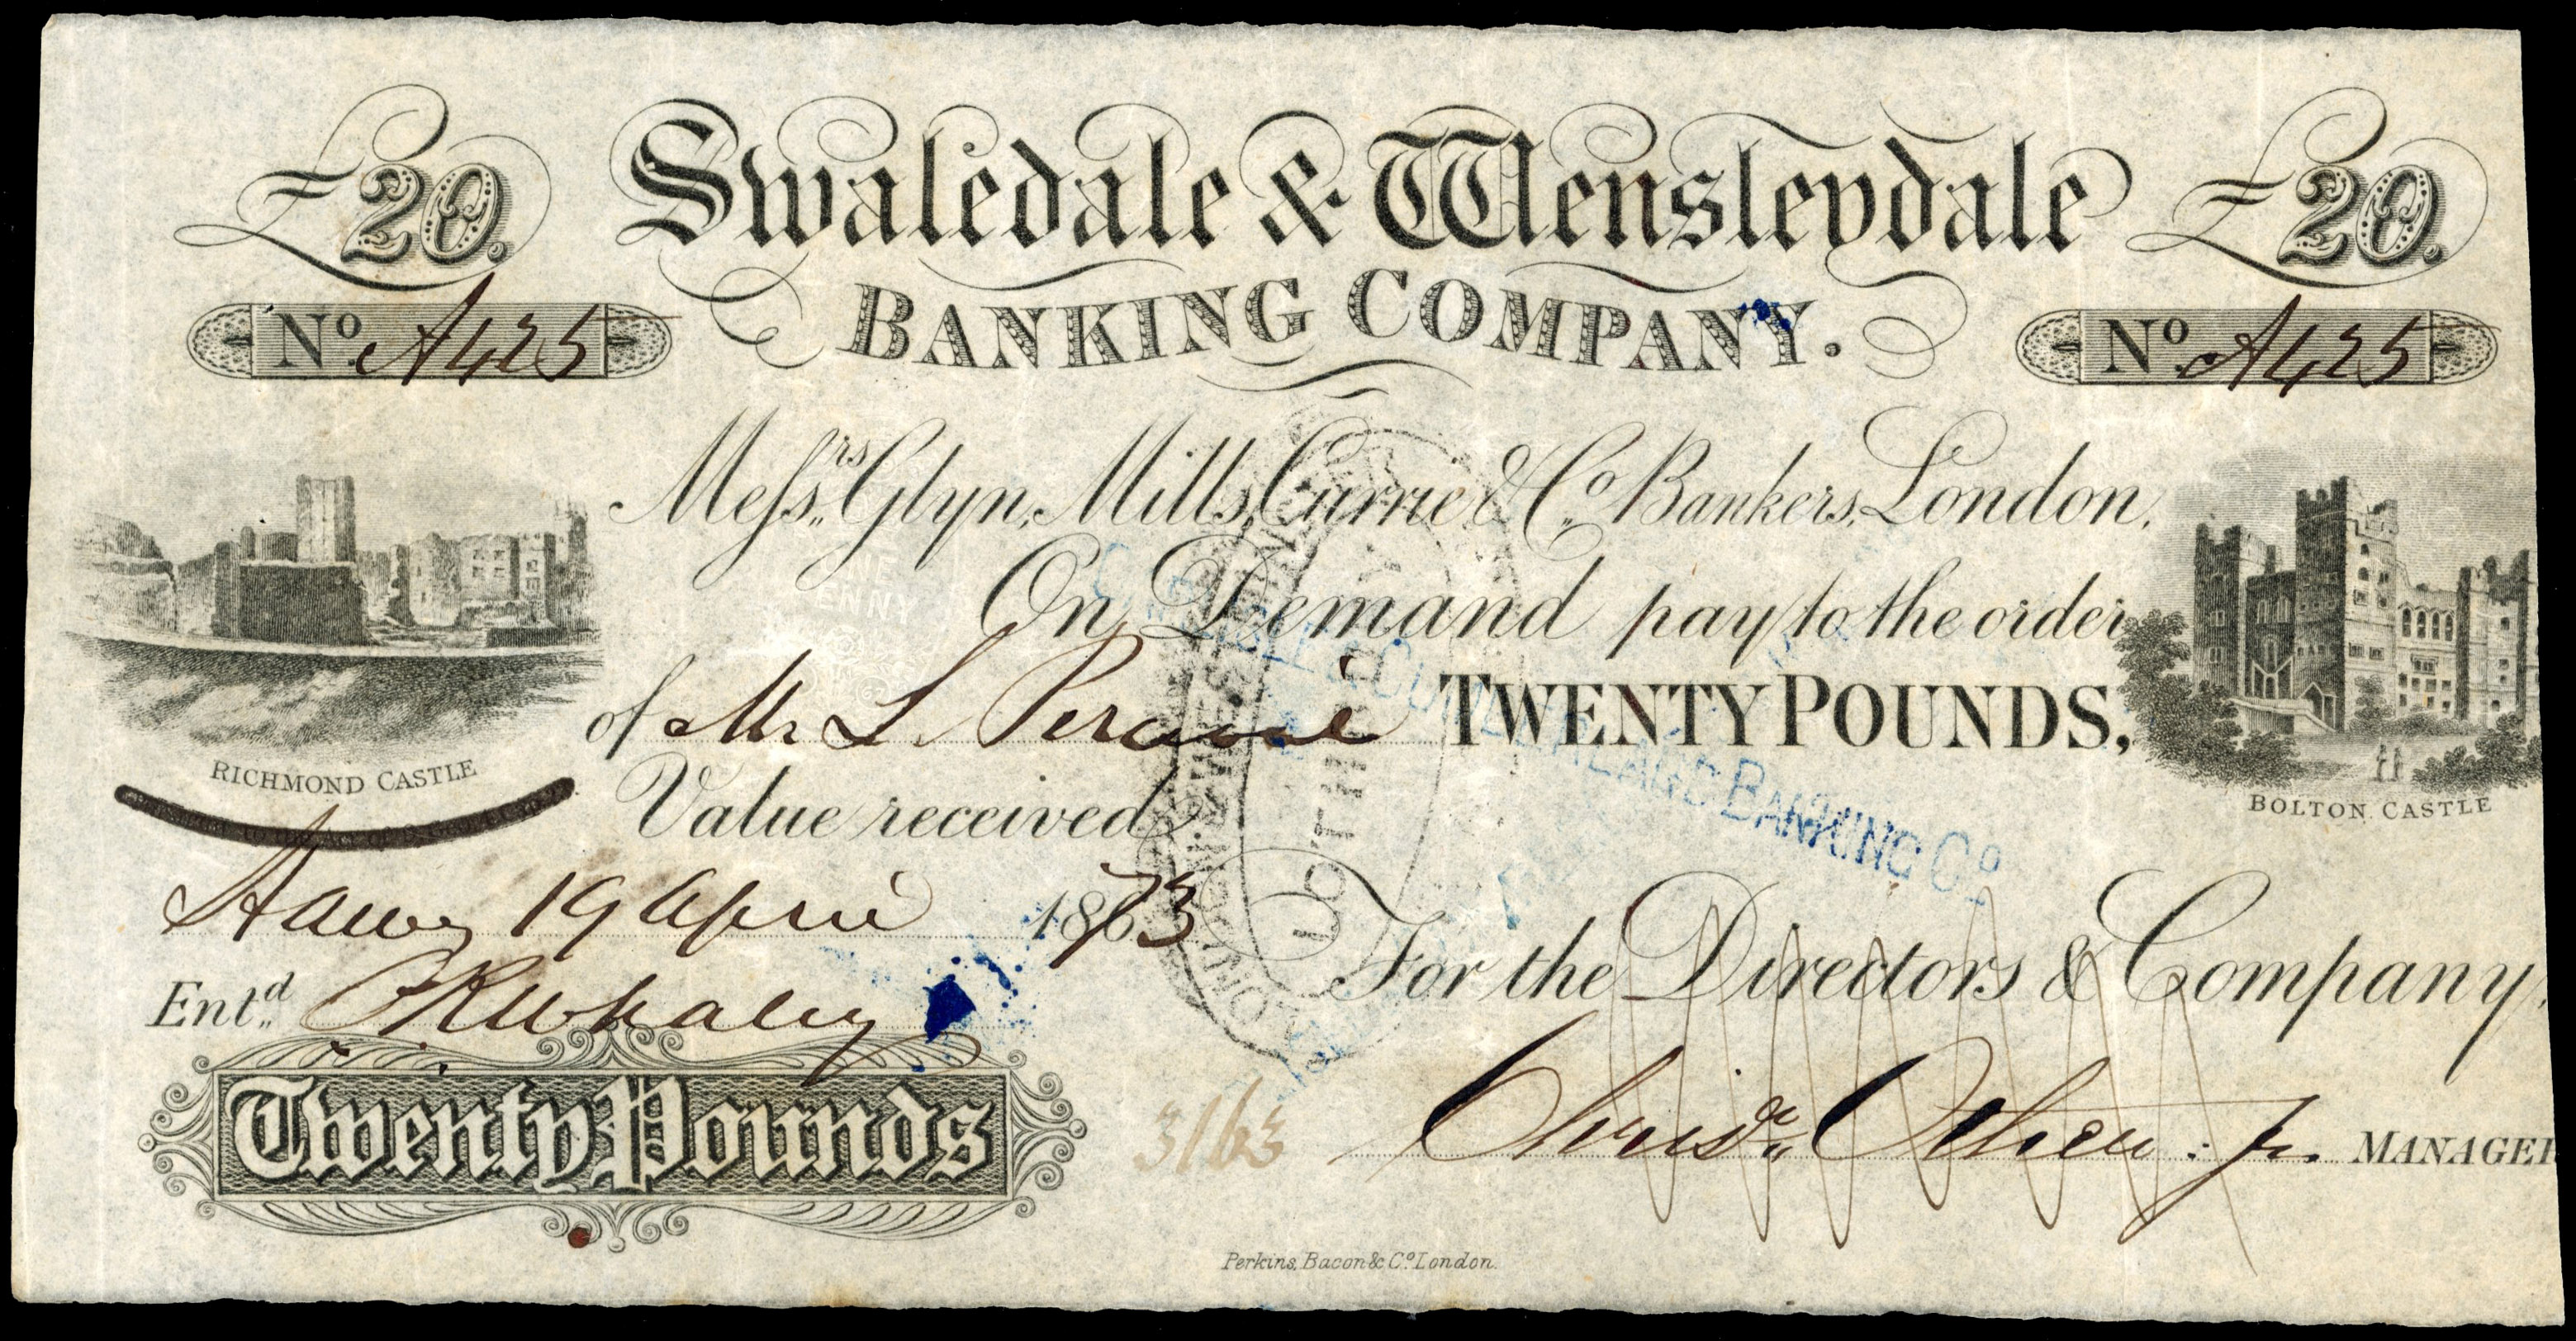 £20. Swaledale & Wensleydale £20.
BANKING COMPANY.
No. A425 No. A425
Messrs. Glyn, Mills, Currie & Co. Bankers, London.
On Demand pay to the order
of Mr L. TWENTY POUNDS,
Value received
RICHMOND CASTLE
BOLTON CASTLE
ONE
PENNY
62
CARLISLE & CUMBERLAND BANKING Co
Hawes 19 April 1873
For the Directors & Company,
Entd. Whaley
Twenty Pounds
3163
Christr. Other Jr. MANAGER
Perkins, Bacon & Co. London.